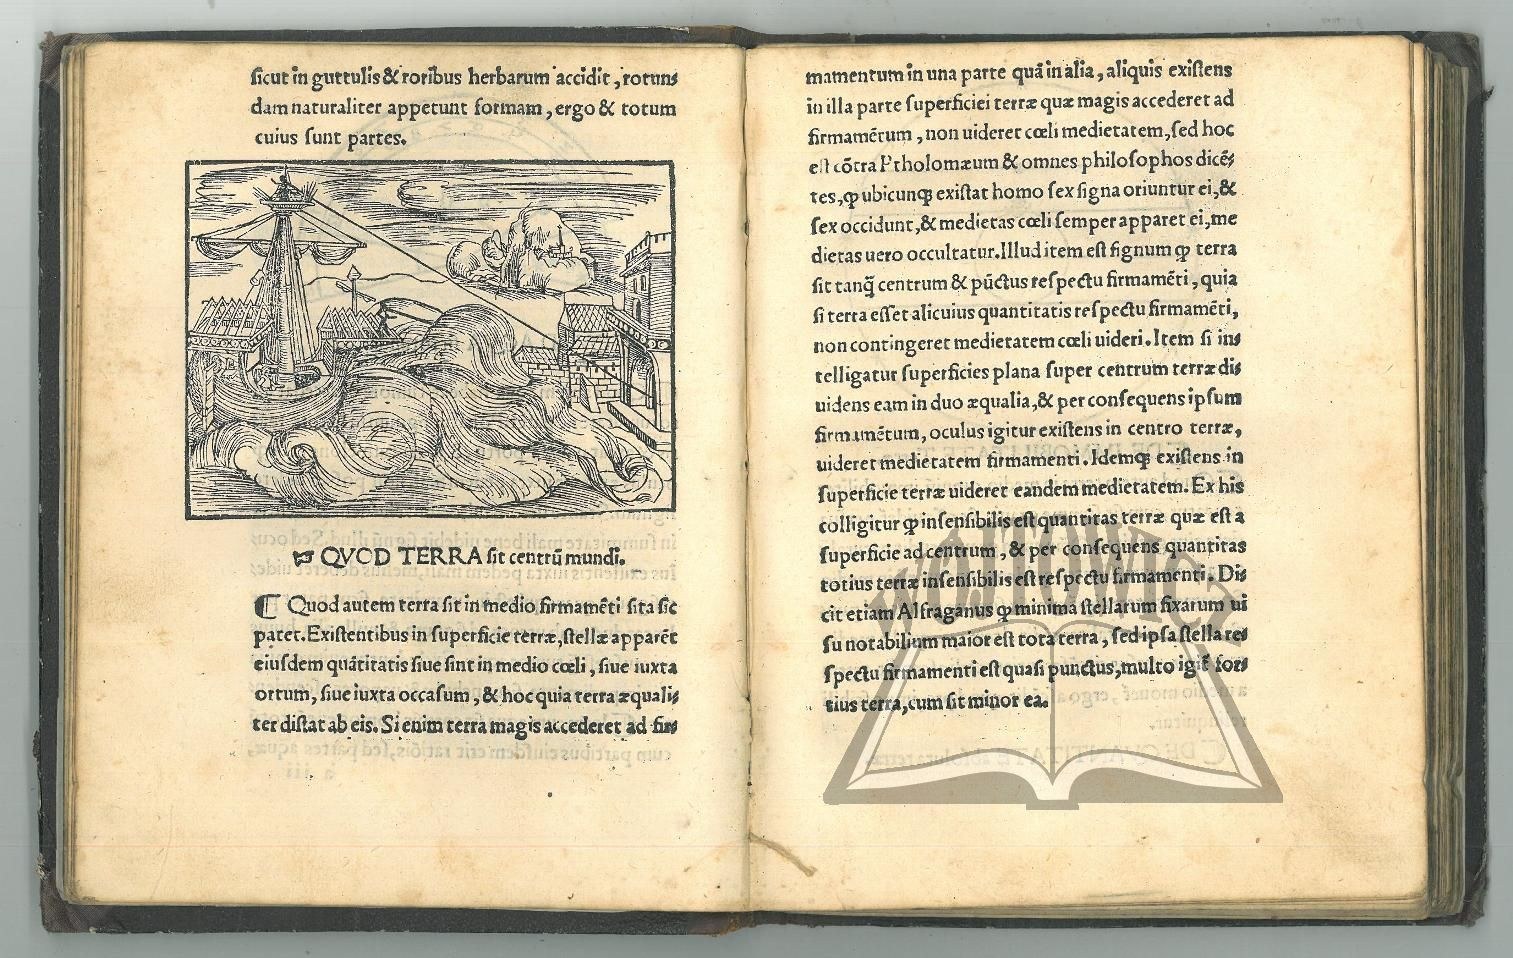 sicut in guttulis & roribus herbarum accidit, rotun-
dam naturaliter appetunt formam, ergo & totum
cuius sunt partes.
QVOD TERRA sit centrũ mundi.
Quod autem terra sit in medio firmamẽti sita sic
patet. Existentibus in superficie terræ, stellæ apparẽt
eiusdem quãtitatis siue sint in medio cœli, siue iuxta
ortum, siue iuxta occasum, & hoc quia terra æquali-
ter distat ab eis. Si enim terra magis accederet ad fir-
mamentum in una parte quã in alia, aliquis existens
in illa parte superficiei terræ quæ magis accederet ad
firmamẽtum, non uideret cœli medietatem, sed hoc
est cõtra Ptholomæum & omnes philosophos dicẽ-
tes, ꝙ ubicunqꝫ existat homo sex signa oriuntur ei, &
sex occidunt, & medietas cœli semper apparet ei, me
dietas uero occultatur. Illud item est signum ꝙ terra
sit tanq̃ centrum & pũctus respectu firmamẽti, quia
si terra esset alicuius quantitatis respectu firmamẽti,
non contingeret medietatem cœli uideri. Item si in-
telligatur superficies plana super centrum terræ di-
uidens eam in duo æqualia, & per consequens ipsum
firmamẽtum, oculus igitur existens in centro terræ,
uideret medietatem firmamenti. Idemqꝫ existens in
superficie terræ uideret eandem medietatem. Ex his
colligitur ꝙ insensibilis est quantitas terræ quæ est a
superficie ad centrum, & per consequens quantitas
totius terræ insensibilis est respectu firmamenti. Di-
cit etiam Alfraganus ꝙ minima stellarum fixarum ui
su notabilium maior est tota terra, sed ipsa stella re-
spectu firmamenti est quasi punctus, multo igit̃ for-
tius terra, cum sit minor ea.
WÓJTOWICZ